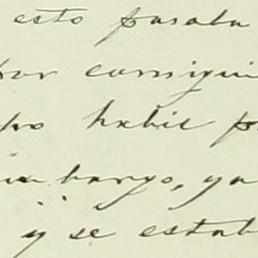 esto pasaba
por consigui
ho habil p
in bargo, ya
y se estab